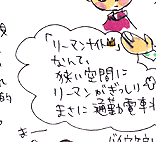 「リーマンナイト」
なんて、
狭い空間に
リーマンがぎっしり
まさに通勤電車
的
まー